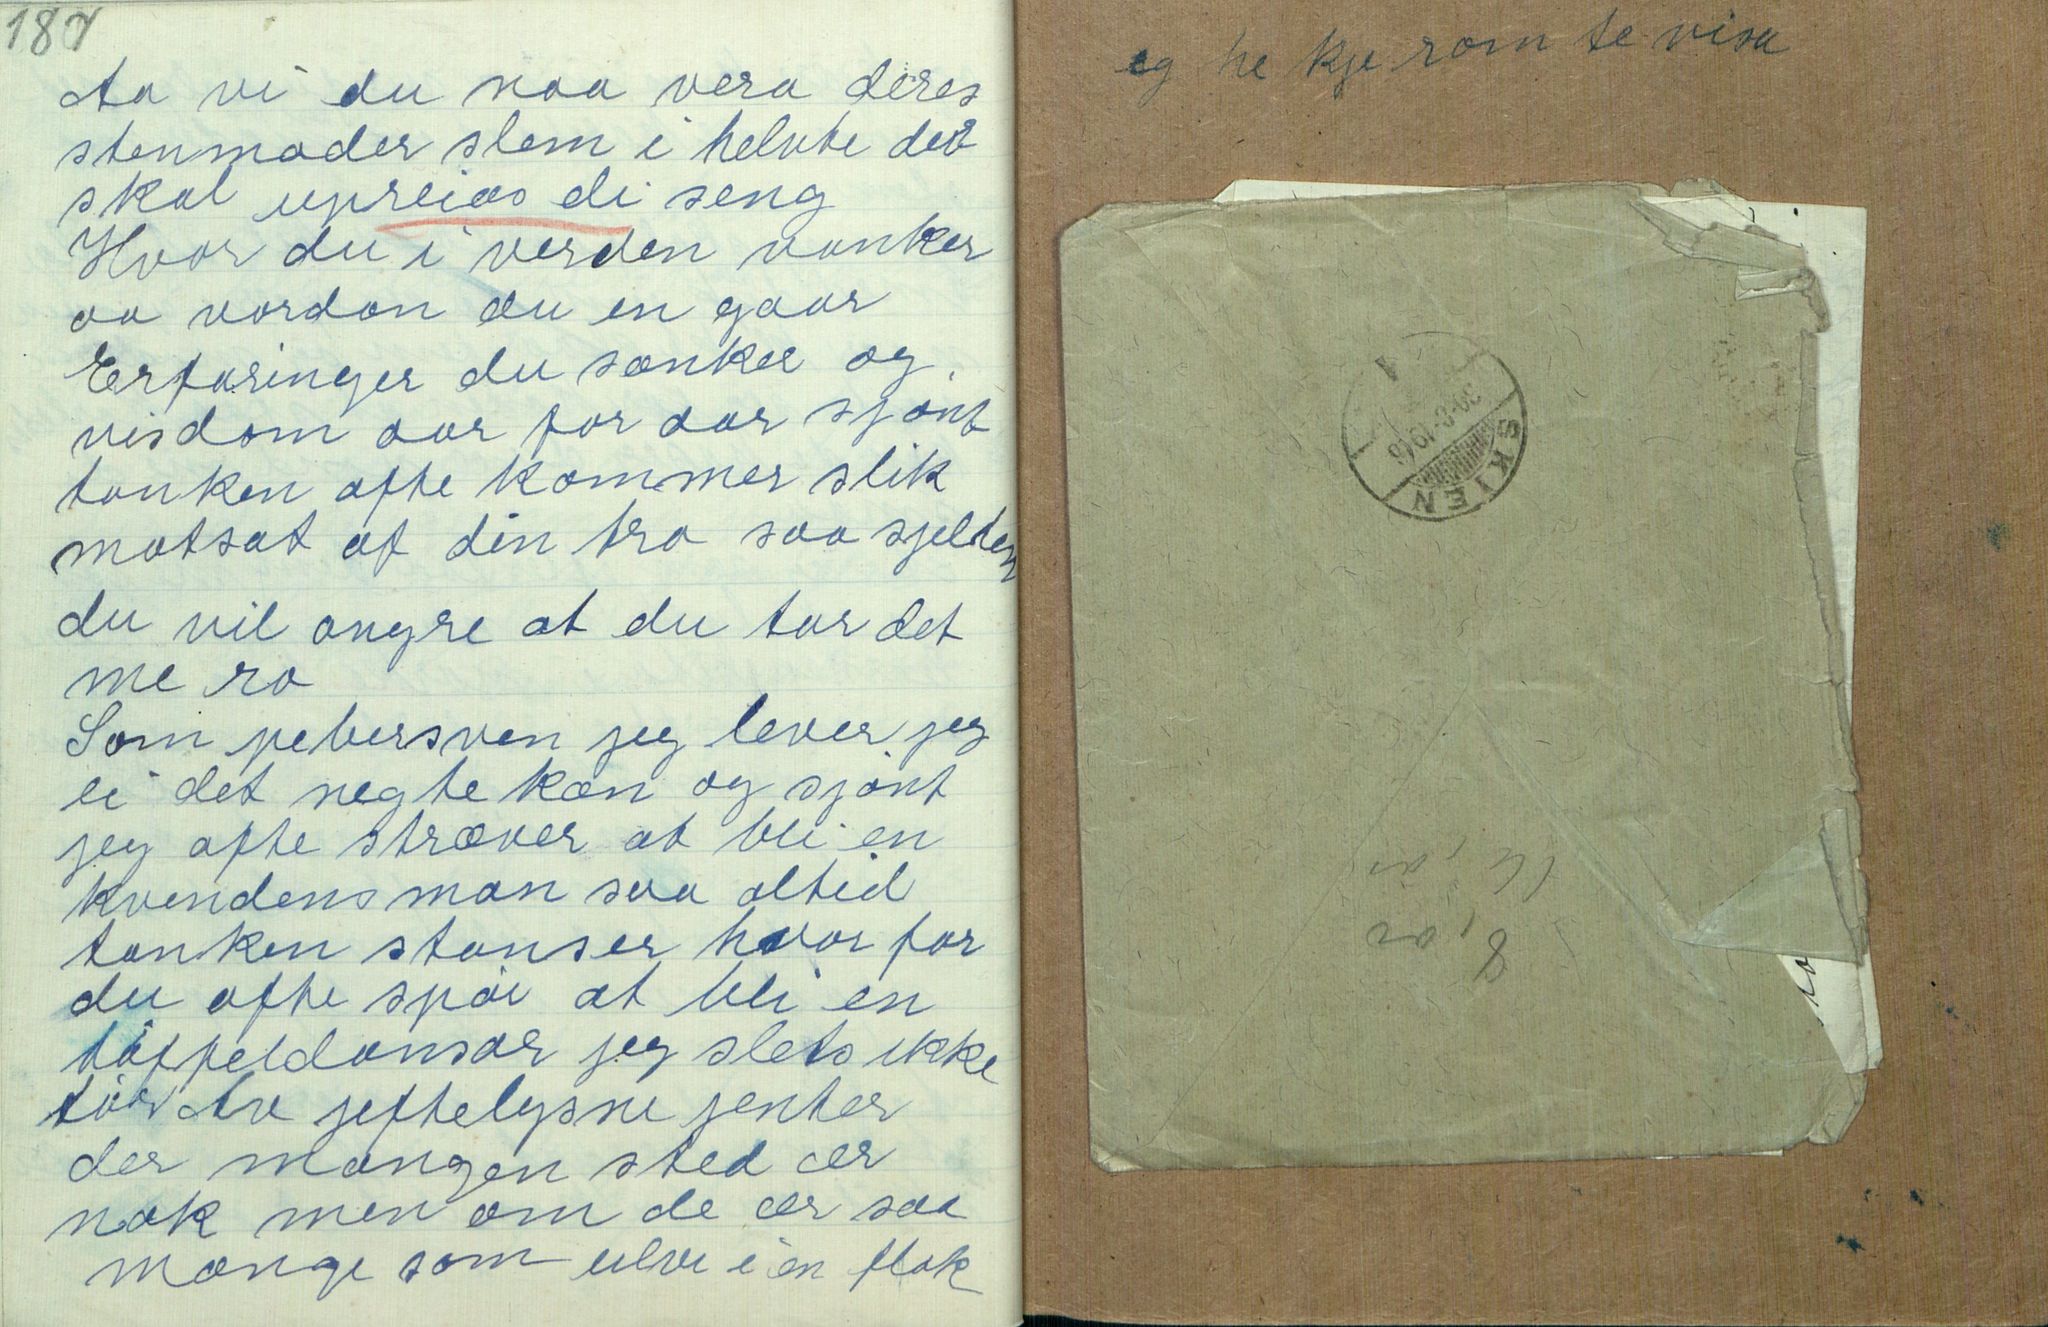 187
Aa vi du naa vera deres
stenmoder slem i helvte der
skal upreias di seng
Hvor du i verden vanker
aa vordan du en gaar
Erfaringer du sanker og
visdom aar for aar sjønt
tanken ofte kommer slik
motsat af din tro saa sjelden
du vil angre at du tar det
me ro
Som pebersven jeg lever jeg
ei det negte kan og sjønt
jeg ofte stræver at bli en
kvendens man saa altid
tanken stanser hvor for
du ofte spør at bli en
tøffeldansar jeg slets ikke
tør Av jeftelysne jenter
der mangen sted ær
nok men om de ær saa
mange som ulve i en flok
eg he kje rom te visa
SKIEN
30-6-1916
16, ar
8, ar